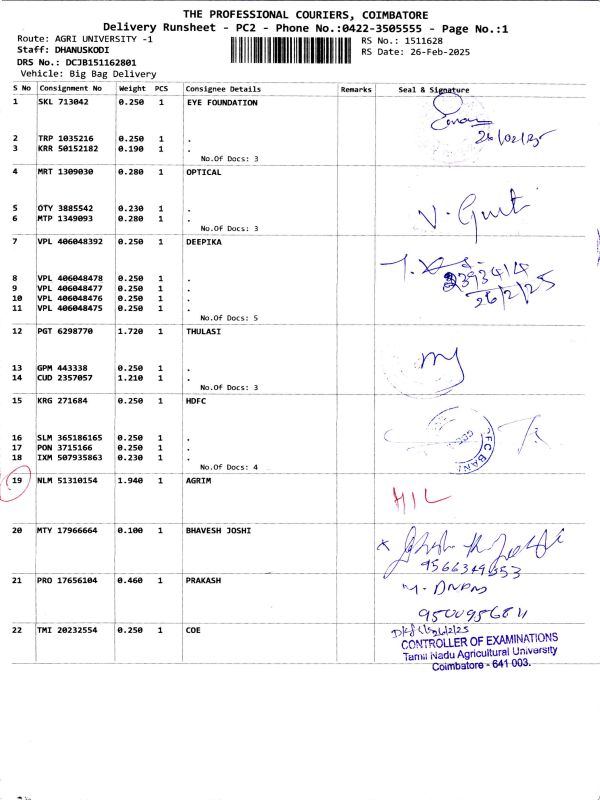 THE PROFESSIONAL COURIERS, COIMBATORE
Delivery Runsheet - PC2 - Phone No.:0422-3505555 - Page No.:1
Route: AGRI UNIVERSITY -1
RS No.: 1511628
Staff: DHANUSKODI
RS Date: 26-Feb-2025
DRS No.: DCJB151162801
Vehicle: Big Bag Delivery
S No Consignment No Weight PCS Consignee Details Remarks Seal & Signature
1 SKL 713042 0.250 1 EYE FOUNDATION
26/02/25
2 TRP 1035216 0.250 1 .
3 KRR 50152182 0.190 1 .
No.Of Docs: 3
4 MRT 1309030 0.280 1 OPTICAL
5 OTY 3885542 0.230 1 .
6 MTP 1349093 0.280 1 .
No.Of Docs: 3
7 VPL 406048392 0.250 1 DEEPIKA
26/2/25
8 VPL 406048478 0.250 1 .
9 VPL 406048477 0.250 1 .
10 VPL 406048476 0.250 1 .
11 VPL 406048475 0.250 1 .
No.Of Docs: 5
12 PGT 6298770 1.720 1 THULASI
13 GPM 443338 0.250 1 .
14 CUD 2357057 1.210 1 .
No.Of Docs: 3
15 KRG 271684 0.250 1 HDFC
16 SLM 365186165 0.250 1 .
17 PON 3715166 0.250 1 .
18 IXM 507935863 0.230 1 .
No.Of Docs: 4
19 NLM 51310154 1.940 1 AGRIM
HIL
20 MTY 17966664 0.100 1 BHAVESH JOSHI
21 PRO 17656104 0.460 1 PRAKASH
22 TMI 20232554 0.250 1 COE
26/2/25
CONTROLLER OF EXAMINATIONS
Tamil Nadu Agricultural University
Coimbatore - 641 003.